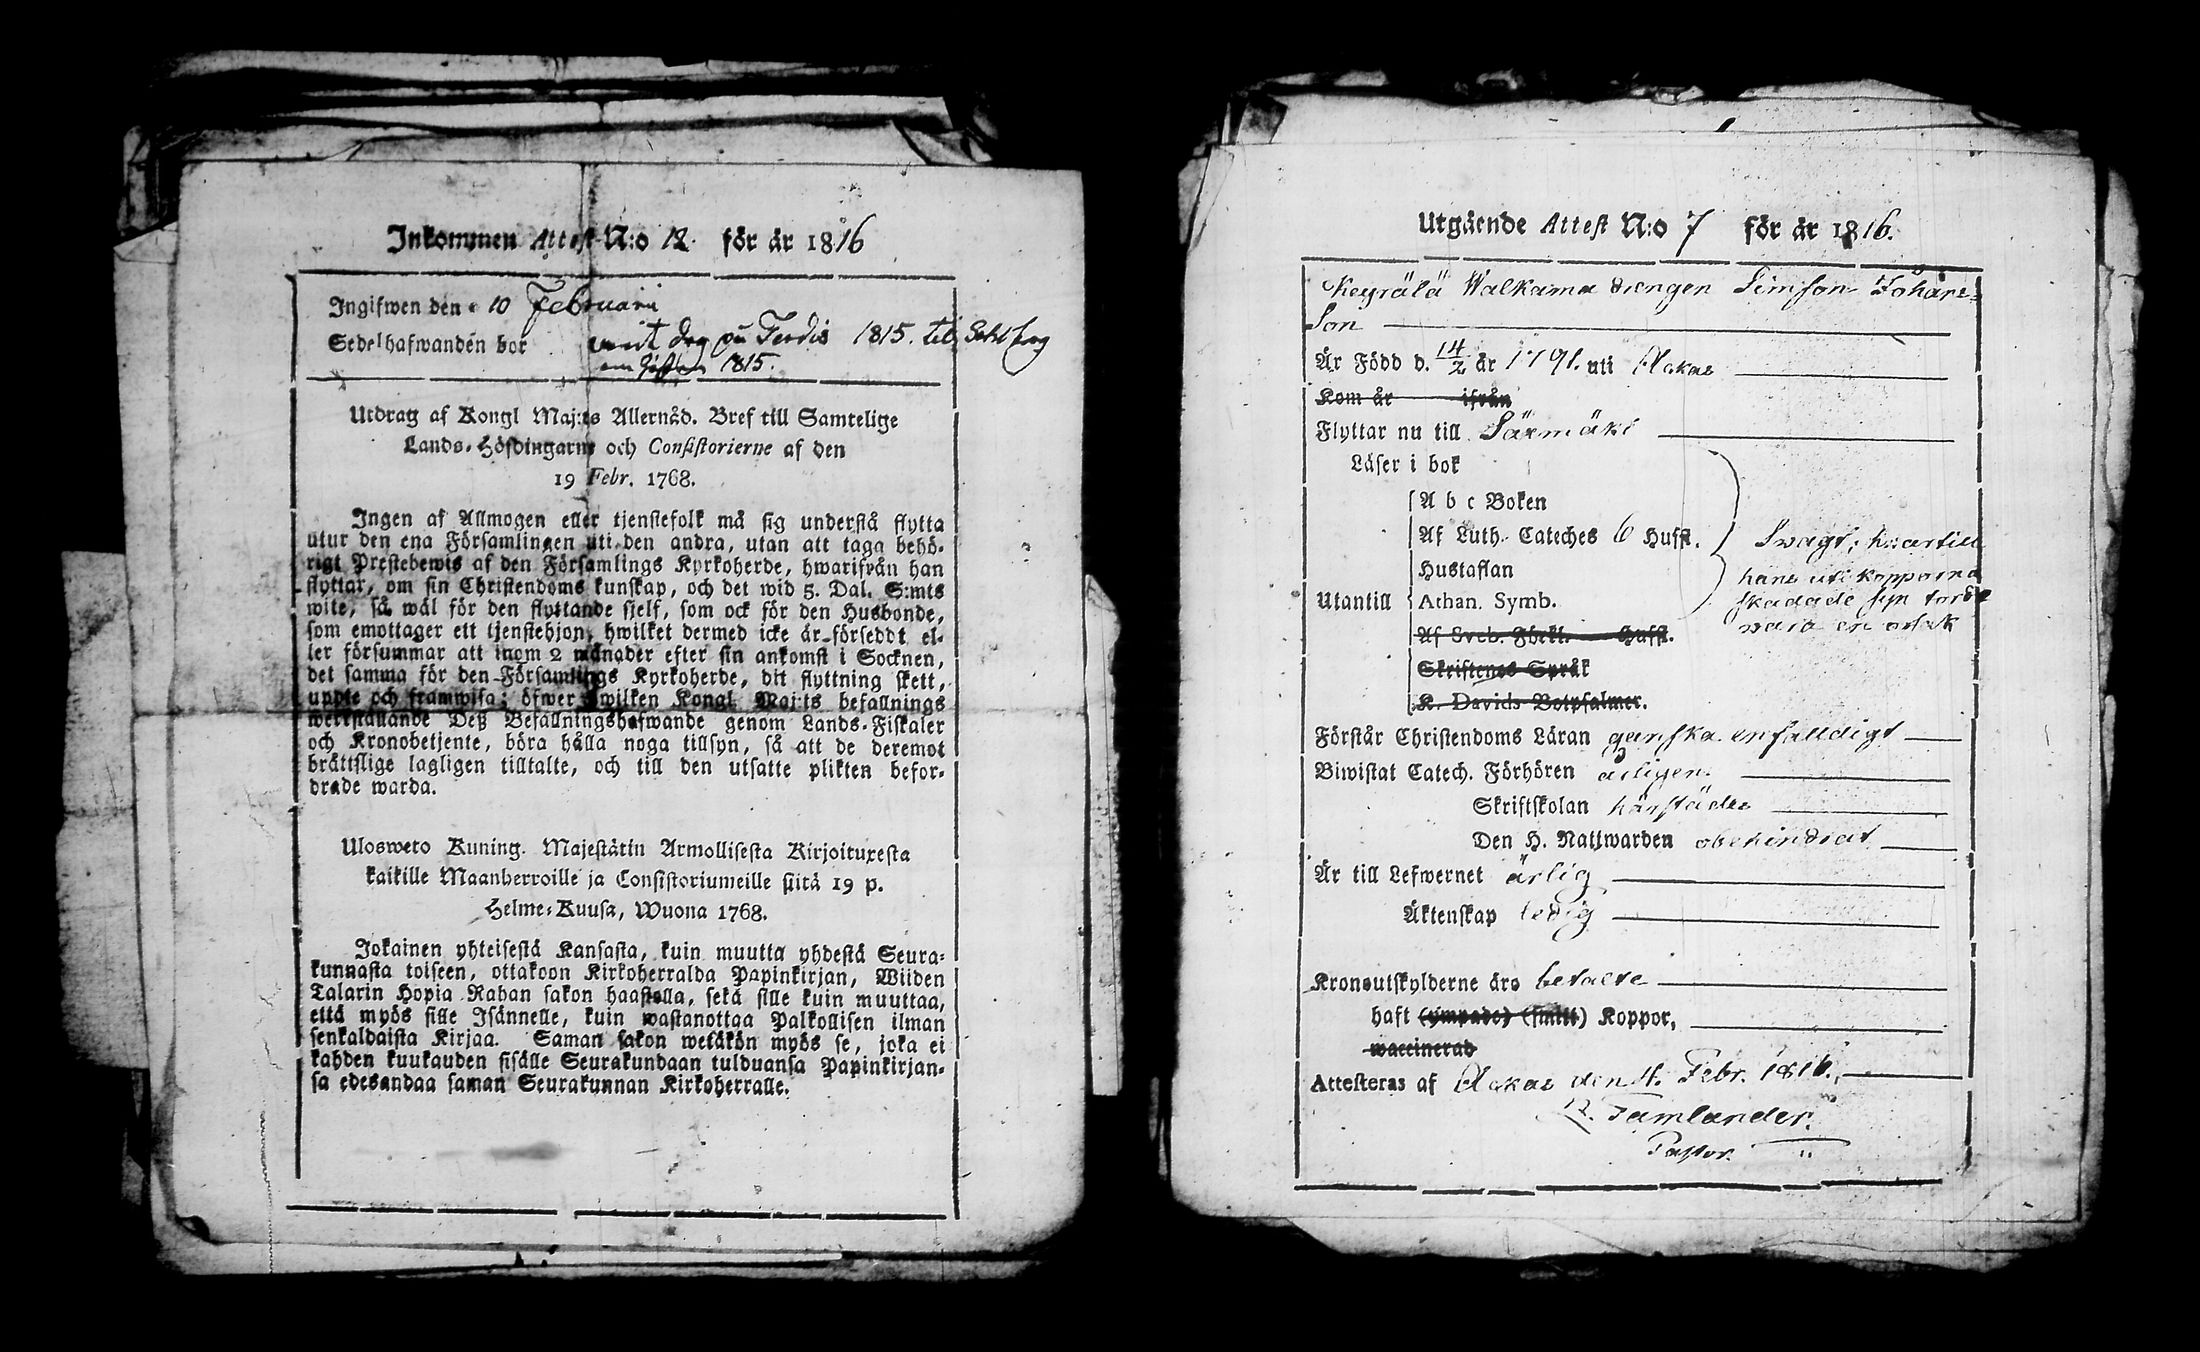 Inkommen Attest N:o 12. för år 1816
Ingifwen den 10 Februarii
Sedelhafwanden bor 1815. til
1815.
Utdrag af Kongl Maj:ts Allernåd. Bref till Samtelige
Lands-Höfdingarne och Consistorierne af den
19 Febr. 1768.
Ingen af Allmogen eller tjenstefolk må sig understå flytta
utur den ena Församlingen uti den andra, utan att taga behö-
rigt Prestebewis af den Församlings Kyrkoherde, hwarifrån han
flyttar, om sin Christendoms kunskap, och det wid 5. Dal. S:mts
wite, så wäl för den flyttande sjelf, som ock för den Husbonde,
som emottager ett tjenstehjon, hwilket dermed icke är förseddt el-
ler försummar att inom 2 månader efter sin ankomst i Socknen,
det samma för den Församlings Kyrkoherde, dit flyttning skett,
uppte och framwisa; öfwer hwilken Kongl. Maj:ts befallnings
werkställande Deß Befallningshafwande genom Lands-Fiskaler
och Kronobetjente, böra hålla noga tillsyn, så att de deremot
brättslige lagligen tilltalte, och till den utsatte plikten befor-
drade warda.
Ulosweto Kuning. Majestätin Armollisesta Kirjoituxesta
kaikille Maanherroille ja Consistoriumeille siitä 19 p.
Helme-Kuusa, Wuona 1768.
Jokainen yhteisestä Kansasta, kuin muutta yhdestä Seura-
kunnasta toiseen, ottakoon Kirkoherralda Papinkirjan, Wiiden
Talarin Hopia Rahan sakon haastolla, sekä sille kuin muuttaa,
että myös sille Isännelle, kuin wastanottaa Palkollisen ilman
senkaldaista Kirjaa. Saman sakon wetäkön myös se, joka ei
kahden kuukauden sisälle Seurakundaan tulduansa Papinkirjan-
sa edesandaa saman Seurakunnan Kirkoherralle.
Utgående Attest N:o 7 för år 1816.
Keyrälä Walkama drengen Simson Johans-
Son
Är Född d. 14/2 år 1791. uti Ackas
Kom år ifrån
Flyttar nu till Säxmäki
Läser i bok
A b c Boken
Af Luth. Cateches 6 Hufst.
Hustaflan
Utantill Athan. Symb.
Af Sveb. Förkl. Hufst.
Skriftenes Språk
K. Davids Botpsalmer.
Swagt, hwartill
hans uti kopporna
skadade syn torde
wara en orsak
Förstår Christendoms Läran ganska enfalldigt
Biwistat Catech. Förhören årligen.
Skriftskolan härstädes
Den H. Nattwarden obehindrat
Är till Lefwernet ärlig
Äktenskap ledig
Kronoutskylderne äro betalte
haft (ympade) (smitt) Koppor,
waccinerad
Attesteras af Ackas den 4. Febr. 1816.
Tamlander.
Pastor.